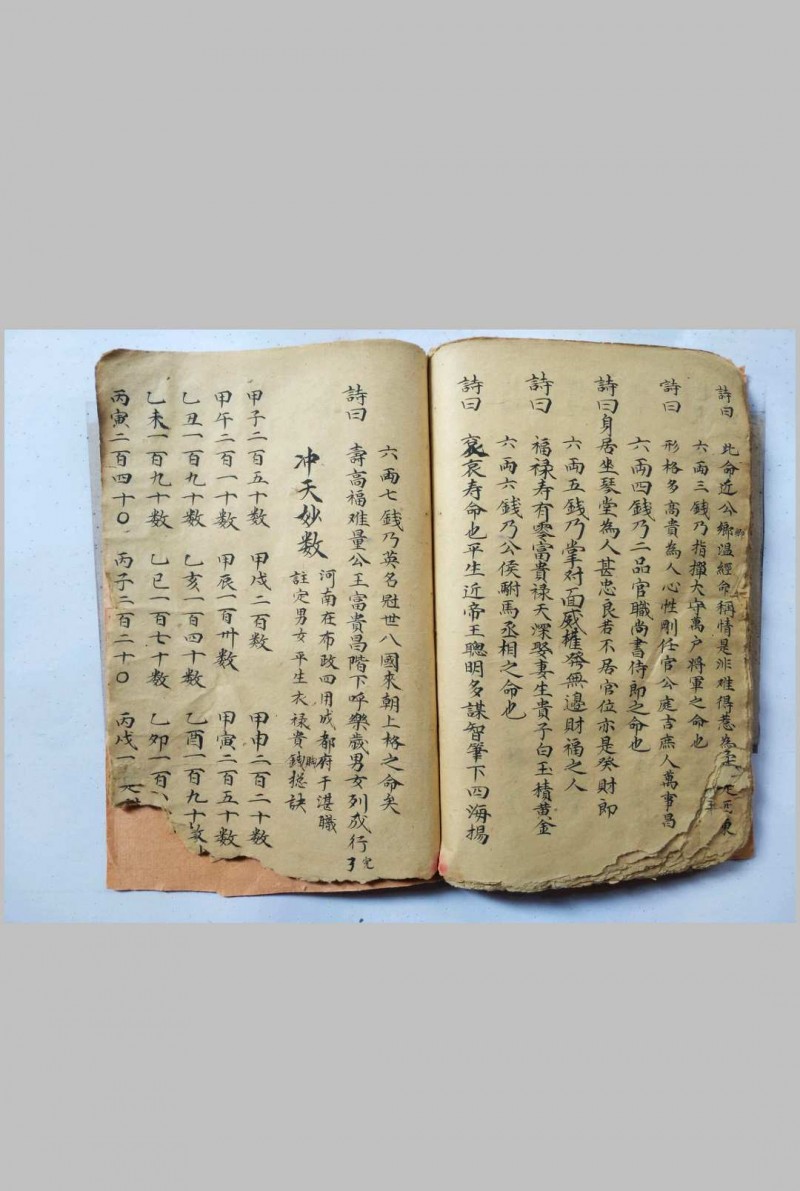 詩曰 此命近公鄉温經命稱情是非难得惹為
六兩三錢乃指揮大守萬户將軍之命也
詩曰 形格多高貴為人心性剛任官公庭吉庶人萬事昌
六兩四錢乃二品官職尚書侍郎之命也
詩曰身居坐琴堂為人甚忠良若不居官位亦是癸財郎
六兩五錢乃掌对面威權發無邊財福之人
詩曰 福禄寿有零富貴禄天深娶妻生貴子白玉積黄金
六兩六錢乃公侯駙馬丞相之命也
詩曰 哀哀寿命也平生近帝王聰明多謀智筆下四海揚
六兩七錢乃英名冠世八國來朝上格之命矣
詩曰 壽高福难量公王富貴昌階下呼樂歲男女列成行完了
冲天妙数
河南在布政四用成都府于湛職
註定男女平生衣禄貴賤捴訣
甲子二百五十数 甲戌二百数 甲申二百二十数
甲午二百一十数 甲辰一百卅数 甲寅二百五十数
乙丑一百九十数 乙亥一百四十数 乙酉一百九十数
乙未一百九十数 乙巳一百七十数 乙卯一百
丙寅二百四十〇 丙子二百二十〇 丙戌一